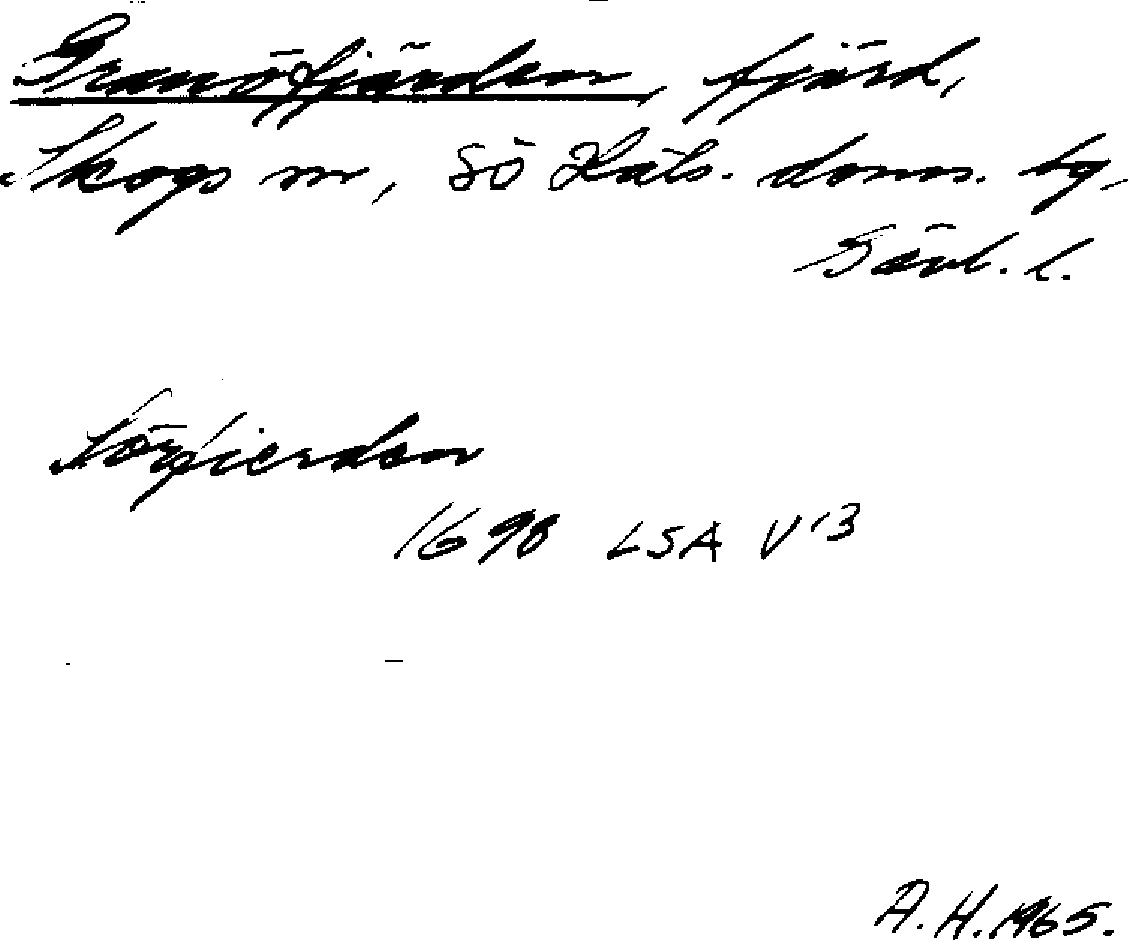 Granöfjärden, fjärd,
Skogs sn, SÖ Häls. doms. bg,
Gävl. l.
Sörfierden
1690 LSA V13
A.H. 1965.